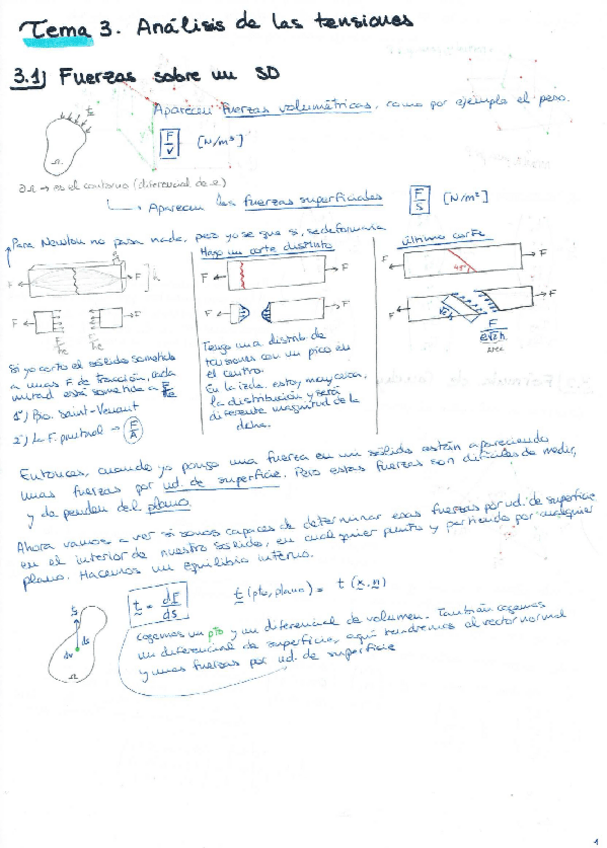 Tema 3. Análisis de las tensiones
3.1) Fuerzas sobre un SD
Aparecen fuerzas volumétricas, como por ejemplo el peso.
F/V [N/m³]
∂Ω → es el contorno (diferencial de Ω)
Aparecen las fuerzas superficiales F/S [N/m²]
Para Newton no pasa nada, pero yo se que si, se deforma
F F h
F F F F
F/he F/he
Si yo corto el sólido sometido
a unas F de tracción, cada
mitad está sometida a F/he
1º) Ppo. Saint-Venant
2º) La F. puntual → F/A
Hago un corte distinto
F F
F F
Tengo una distrib. de
tensiones con un pico en
el centro.
En la izda. estoy
la distribución y será
diferente magnitud de la
dcha.
último corte
F 45° F
F F
F/e√2h
Entonces, cuando yo pongo una fuerza en un sólido están apareciendo
unas fuerzas por ud. de superficie. Pero estas fuerzas son difíciles de medir,
y dependen del plano.
Ahora vamos a ver si somos capaces de determinar esas fuerzas por ud. de superficie
en el interior de nuestro sólido, en cualquier punto y partiendo por cualquier
plano. Hacemos un equilibrio interno.
t = dF/ds t (pto, plano) = t (x, n)
t ds dv Ω
cogemos un pto y un diferencial de volumen. También cogemos
un diferencial de superficie, aquí tendremos el vector normal
y unas fuerzas por ud. de superficie
1